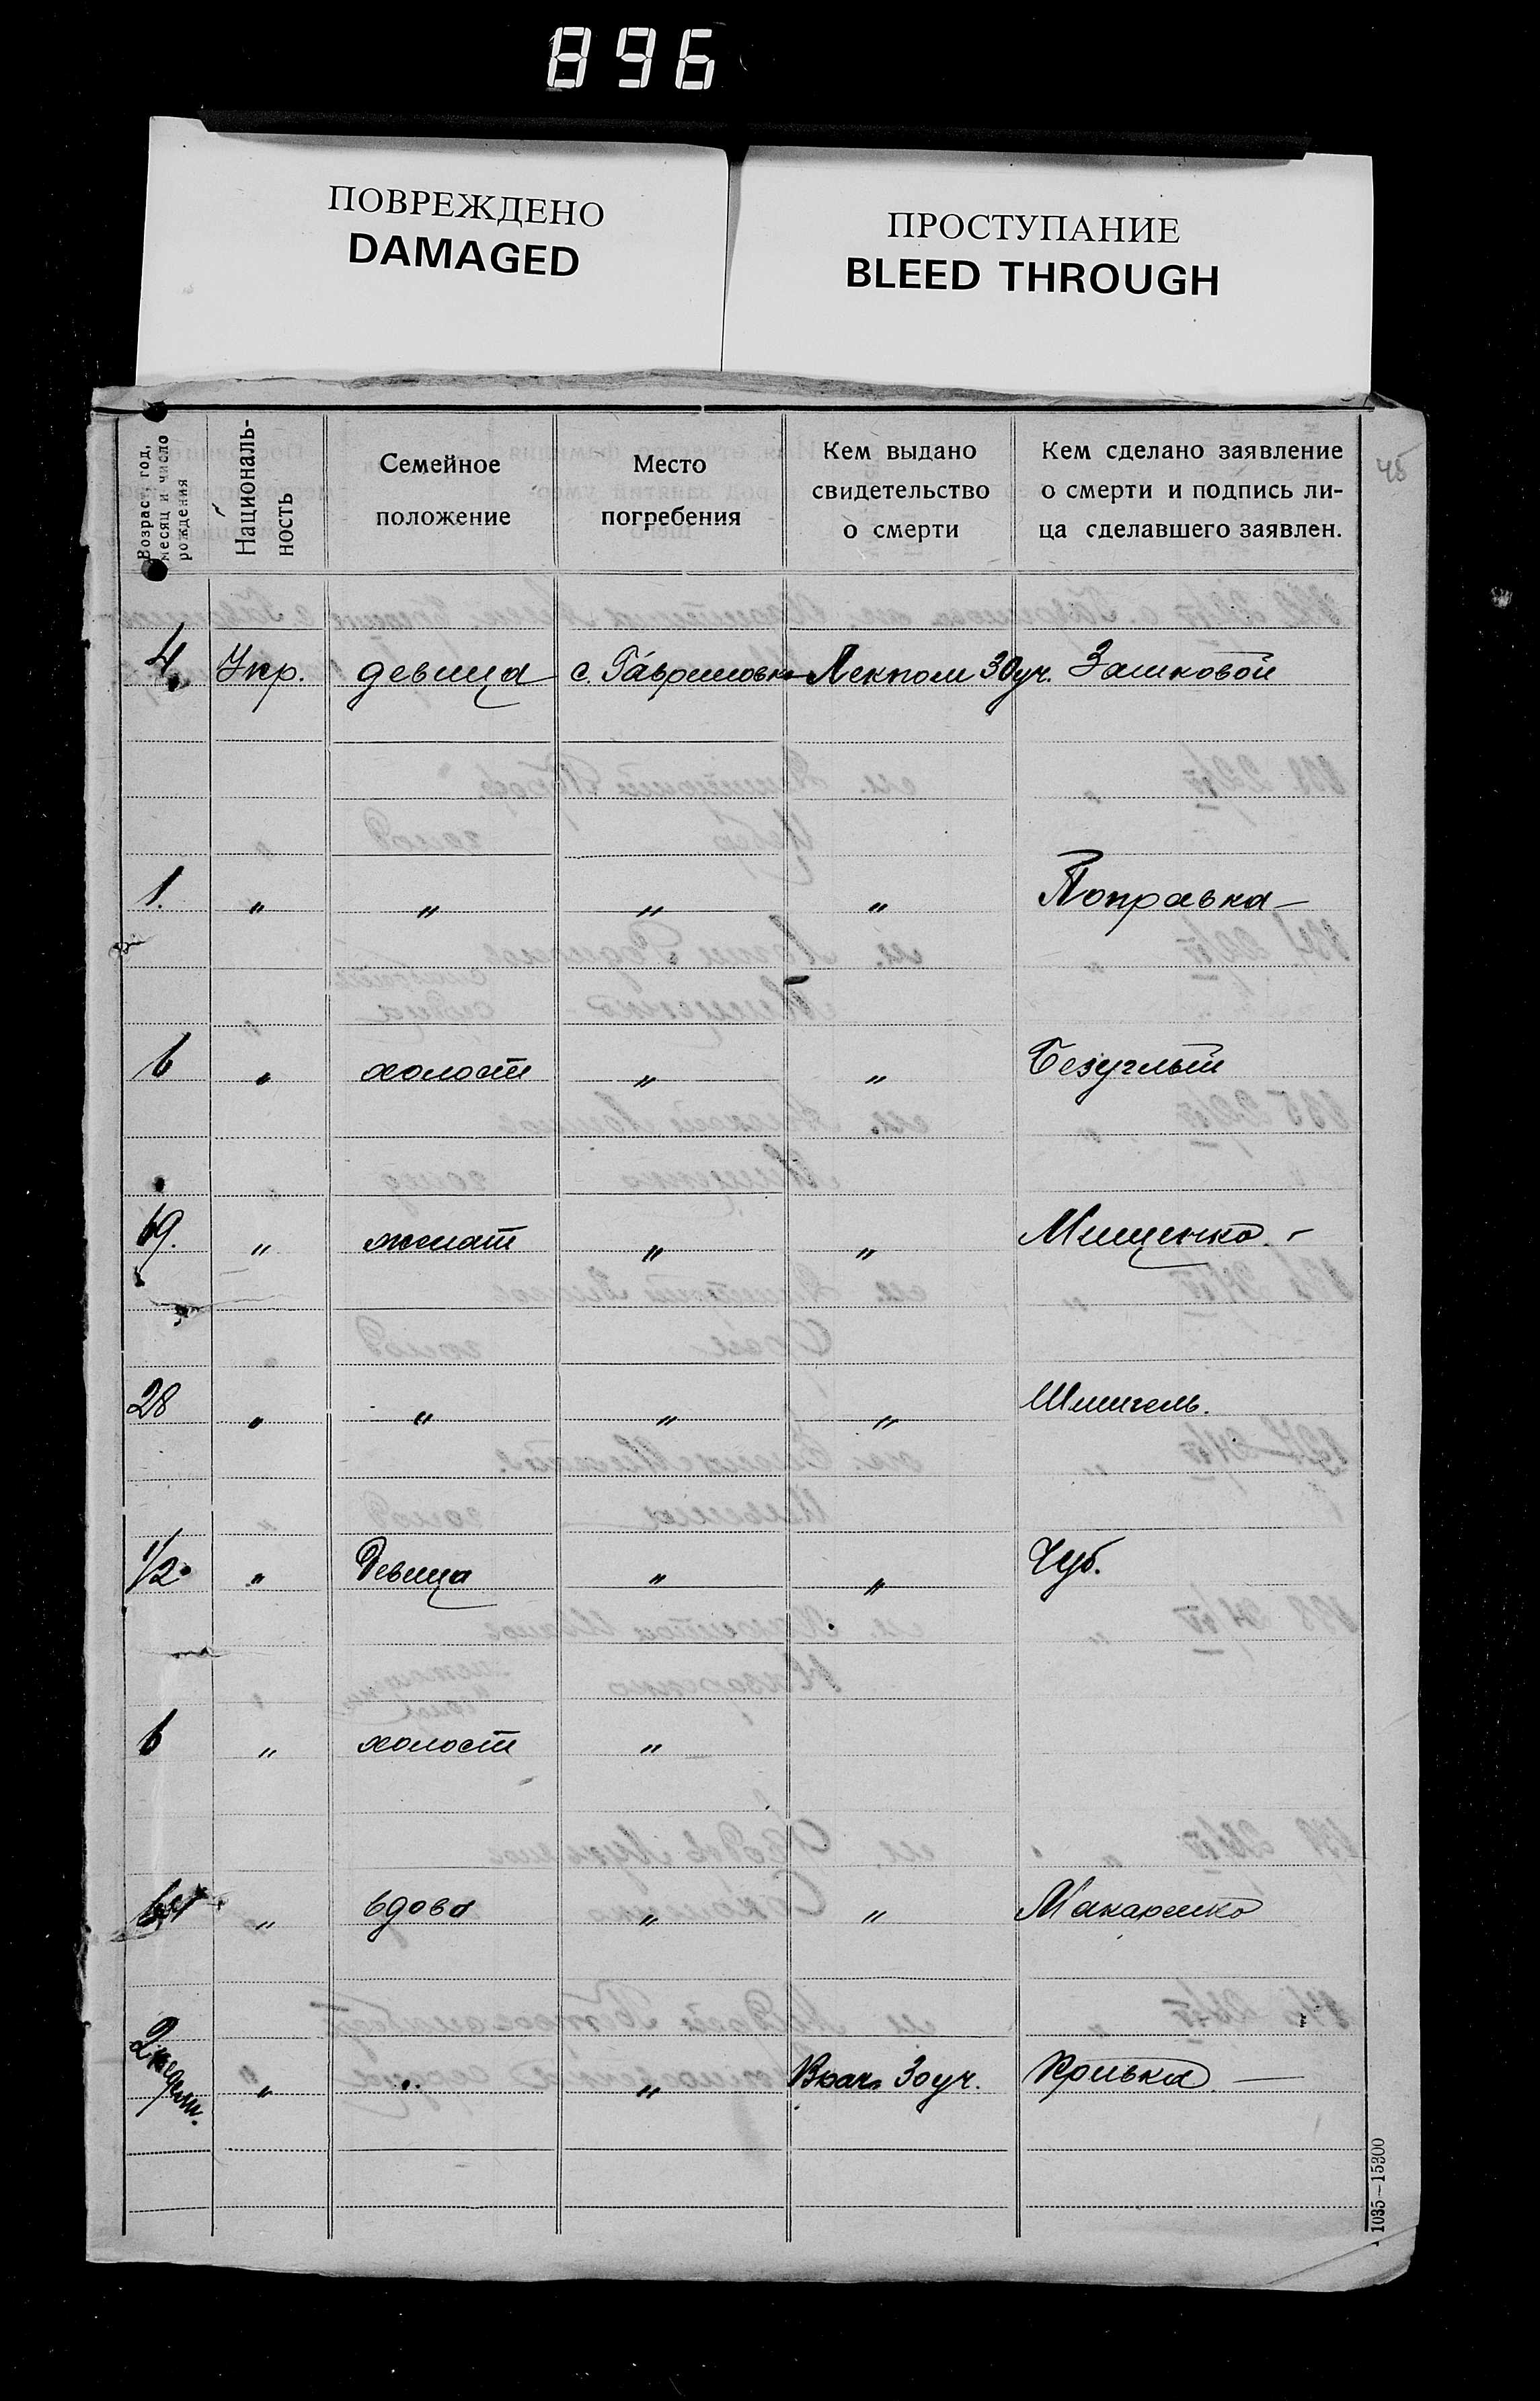 896
ПОВРЕЖДЕНО
DAMAGED
ПРОСТУПАНИЕ
BLEED THROUGH
45
Возраст, год, месяц и число рождения
Националь-
ность
Семейное
положение
Место
погребения
Кем выдано
свидетельство
о смерти
Кем сделано заявление
о смерти и подпись ли-
ца сделавшего заявлен.
4 Укр. девица с. Гавриловка Лекпом 30 уч. Зашковой
1. " " " " Поправка —
6 " холост " " Безуглый
19. " женат " " Мищенко. -
28 " " " " Шмигель.
1/2 " Девица " " Чуб.
6 " холост "
" вдова " " Макаренко
2 недели. " " " Врач 30 уч. Кривка —
1035—15300